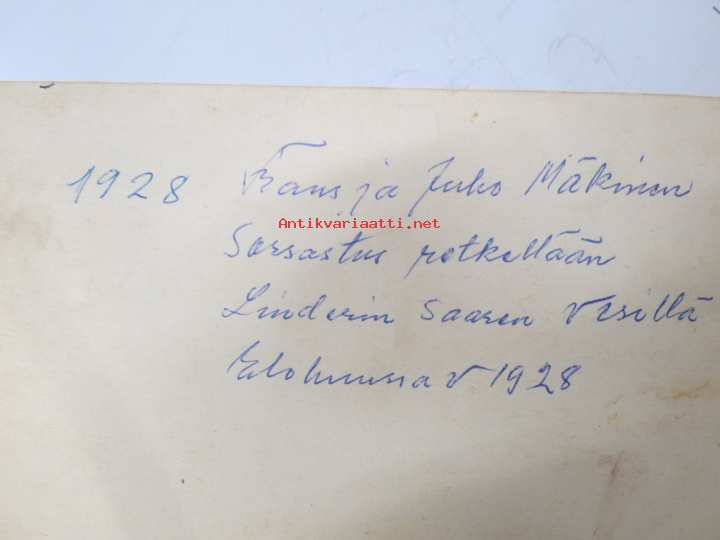 1928 Frans ja Juho Mäkinen
Antikvariaatti.net
Sorsastus retkellään
Linderin saaren vesillä
Elokuussa v 1928